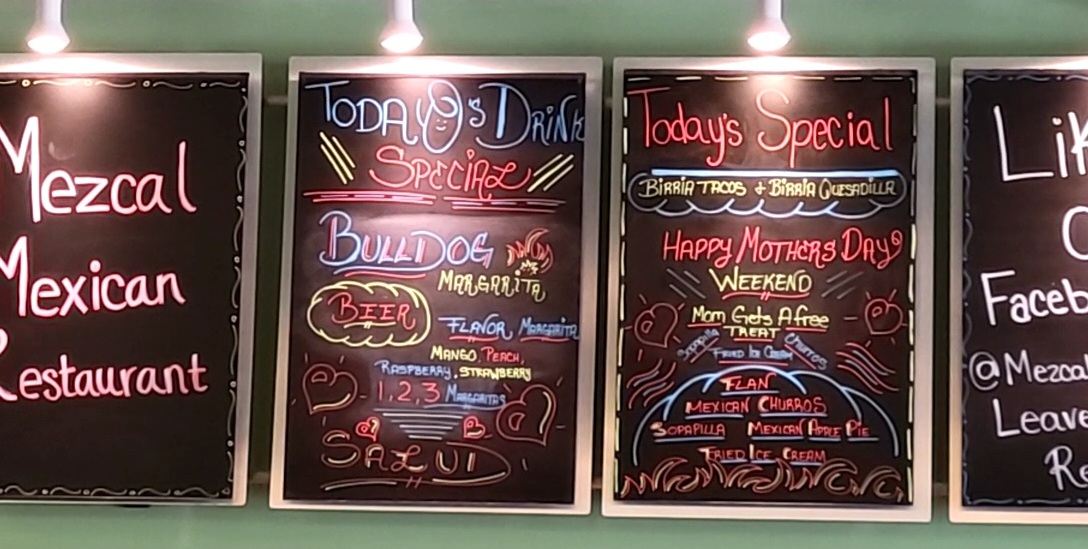 Mezcal
Mexican
Restaurant
TODAY'S DRINK
SPECIAL
BULLDOG
MARGARITA
BEER
FLAVOR MARGARITA
MANGO, PEACH,
RASPBERRY, STRAWBERRY
1,2,3 MARGARITAS
SALUD
Today's Special
BIRRIA TACOS + BIRRIA QUESADILLA
HAPPY MOTHERS DAY
WEEKEND
Mom Gets A free
TREAT
Sopapilla FRIED ICE CREAM Churros
FLAN
MEXICAN CHURROS
SOPAPILLA MEXICAN APPLE PIE
FRIED ICE CREAM
Lik
Faceb
@Mezcal
Leave
Re